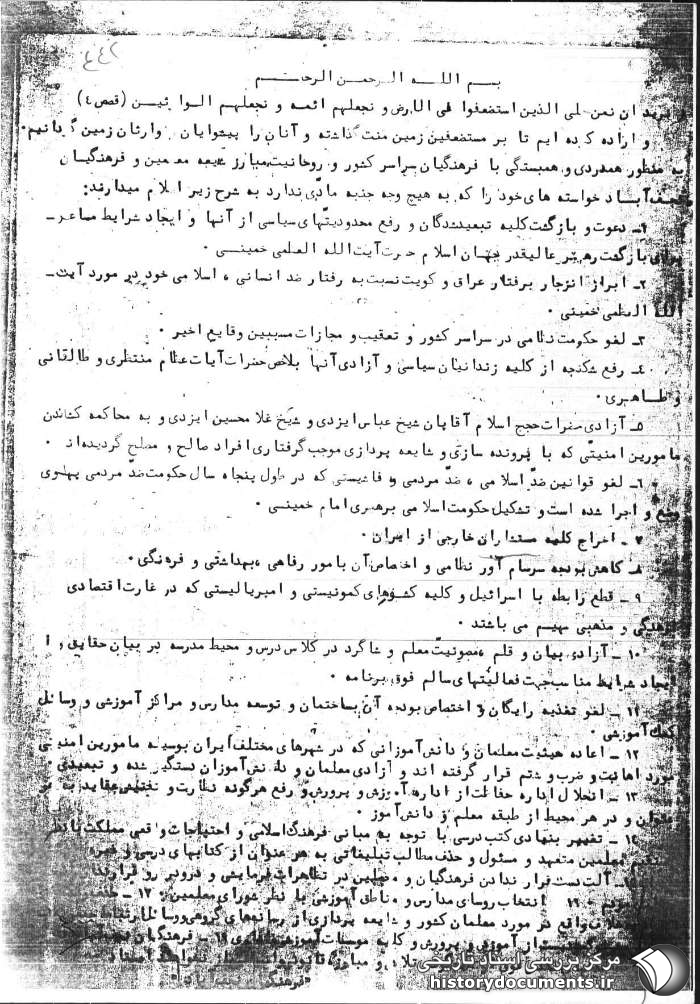 ۴۴۲
بسم الله الرحمن الرحیم
و نرید ان نمن علی الذین استضعفوا فی الارض و نجعلهم ائمه و نجعلهم الوارثین (قصص ٤)
و اراده کرده ایم تا بر مستضعفین زمین منت گذاشته و آنان را پیشوایان و وارثان زمین گردانیم.
به منظور همدردی و همبستگی با فرهنگیان سراسر کشور و روحانیت مبارز شیعه معلمین و فرهنگیان
نجف آباد خواسته های خود را که به هیچ وجه جنبه مادّی ندارد به شرح زیر اعلام میدارند:
۱- دعوت و بازگشت کلیه تبعیدشدگان و رفع محدودیتهای سیاسی از آنها و ایجاد شرایط مساعد-
برای بازگشت رهبر عالیقدر جهان اسلام حضرت آیت الله العظمی خمینی .
۲- ابراز انزجار برفتار عراق و کویت نسبت به رفتار ضد انسانی ، اسلامی خود در مورد آیت-
الله العظمی خمینی .
۳- لغو حکومت نظامی در سراسر کشور و تعقیب و مجازات مسببین وقایع اخیر .
٤- رفع شکنجه از کلیه زندانیان سیاسی و آزادی آنها بلاخص حضرات آیات عظام منتظری و طالقانی
و طاهری .
۵- آزادی حضرات حجج اسلام آقایان شیخ عباس ایزدی و شیخ غلامحسین ایزدی و به محاکمه کشاندن
مامورین امنیتی که با پرونده سازی و شایعه پردازی موجب گرفتاری افراد صالح و مصلح گردیده اند .
٦- لغو قوانین ضدّ اسلامی ، ضدّ مردمی و فاشیستی که در طول پنجاه سال حکومت ضدّ مردمی پهلوی
وضع و اجرا شده است و تشکیل حکومت اسلامی برهبری امام خمینی .
۷ - اخراج کلیه مستشاران خارجی از ایران .
۸- کاهش بودجه سرسام آور نظامی و اختصاص آن بامور رفاهی ، بهداشتی و فرهنگی .
۹ - قطع رابطه با اسرائیل و کلیه کشورهای کمونیستی و امپریالیستی که در غارت اقتصادی
فرهنگی و مذهبی سهیم می باشند .
۱۰ - آزادی بیان و قلم ، مصونیت معلم و شاگرد در کلاس درس و محیط مدرسه در بیان حقایق و
ایجاد شرایط مناسب جهت فعالیتهای سالم فوق برنامه .
۱۱ - لغو تغذیه رایگان و اختصاص بودجه آن بساختمان و توسعه مدارس و مراکز آموزشی و وسائل
کمک آموزشی .
۱۲ - اعاده حیثیت معلمان و دانش آموزانی که در شهرهای مختلف ایران بوسیله مامورین امنیتی
مورد اهانت و ضرب و شتم قرار گرفته اند و آزادی معلمان و دانش آموزان دستگیر شده و تبعیدی .
۱۳ - انحلال اداره حفاظت از اداره آموزش و پرورش و رفع هرگونه نظارت و تفتیش عقاید به هر
عنوان و در هر محیط از طبقه معلم و دانش آموز .
تغییر بنیادی کتب درسی با توجه به مبانی فرهنگ اسلامی و احتیاجات واقعی مملکت با نظر
معلمین متعهد و مسئول و حذف مطالب تبلیغاتی به هر عنوان از کتابهای درسی و
آلت دست قرار ندادن فرهنگیان و محصلین در تظاهرات فرمایشی و
انتخاب روسای مدارس و مناطق آموزشی با نظر شورای معلمین . ۱۷ -
خلاف واقع در مورد معلمان کشور و شایعه پردازی از رسانه های گروهی
از آموزش و پرورش و کلیه موسسات آموزشی
مرکز بررسی اسناد تاریخی
historydocuments.ir